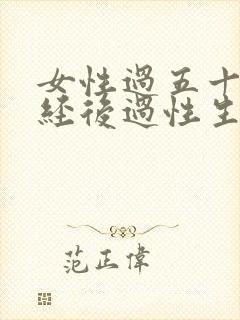 女性過五十
經後過性生
范正偉